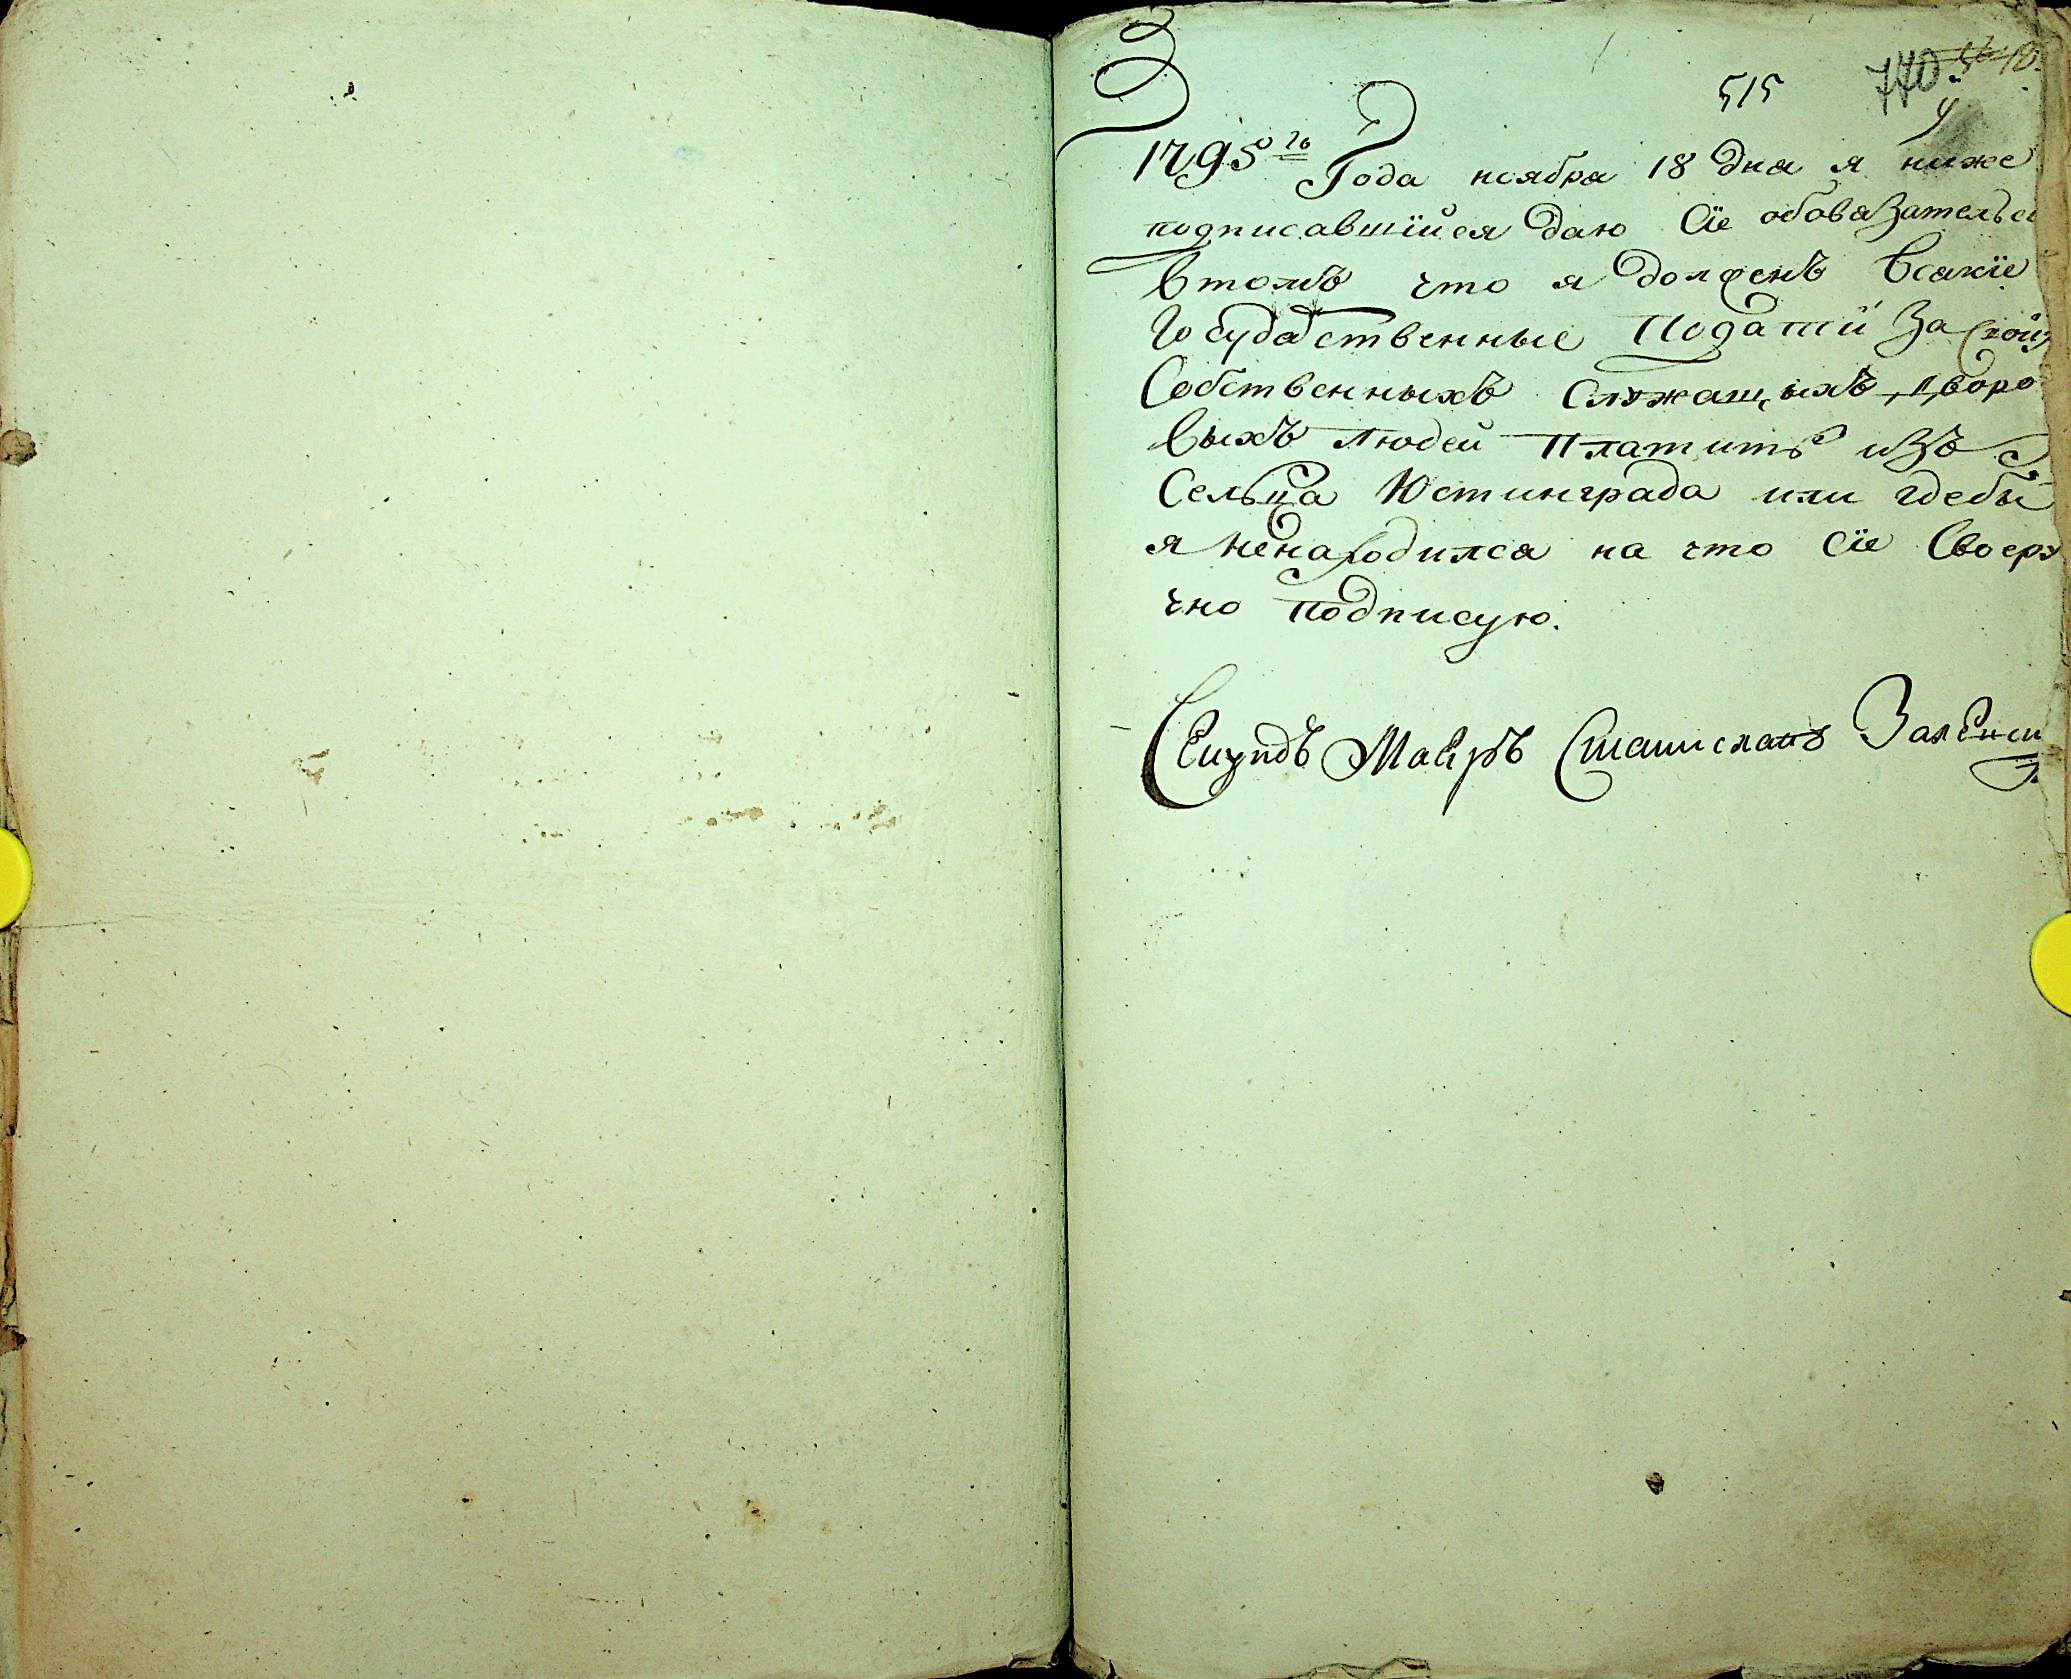 515 770
1795го Года ноября 18 дня я ниже
подписавшїйся даю сїе обовязательс
втомъ что я долженъ всякїе
Государственные Податїи За свойхъ
Собственныхъ Служащихъ, дворо
выхъ людей платить изъ
Сельца Юстинграда или гдебы
я ненаходился на что сїе Своеру
чно подписую.
Секундъ Маіоръ Станиславъ Заленски